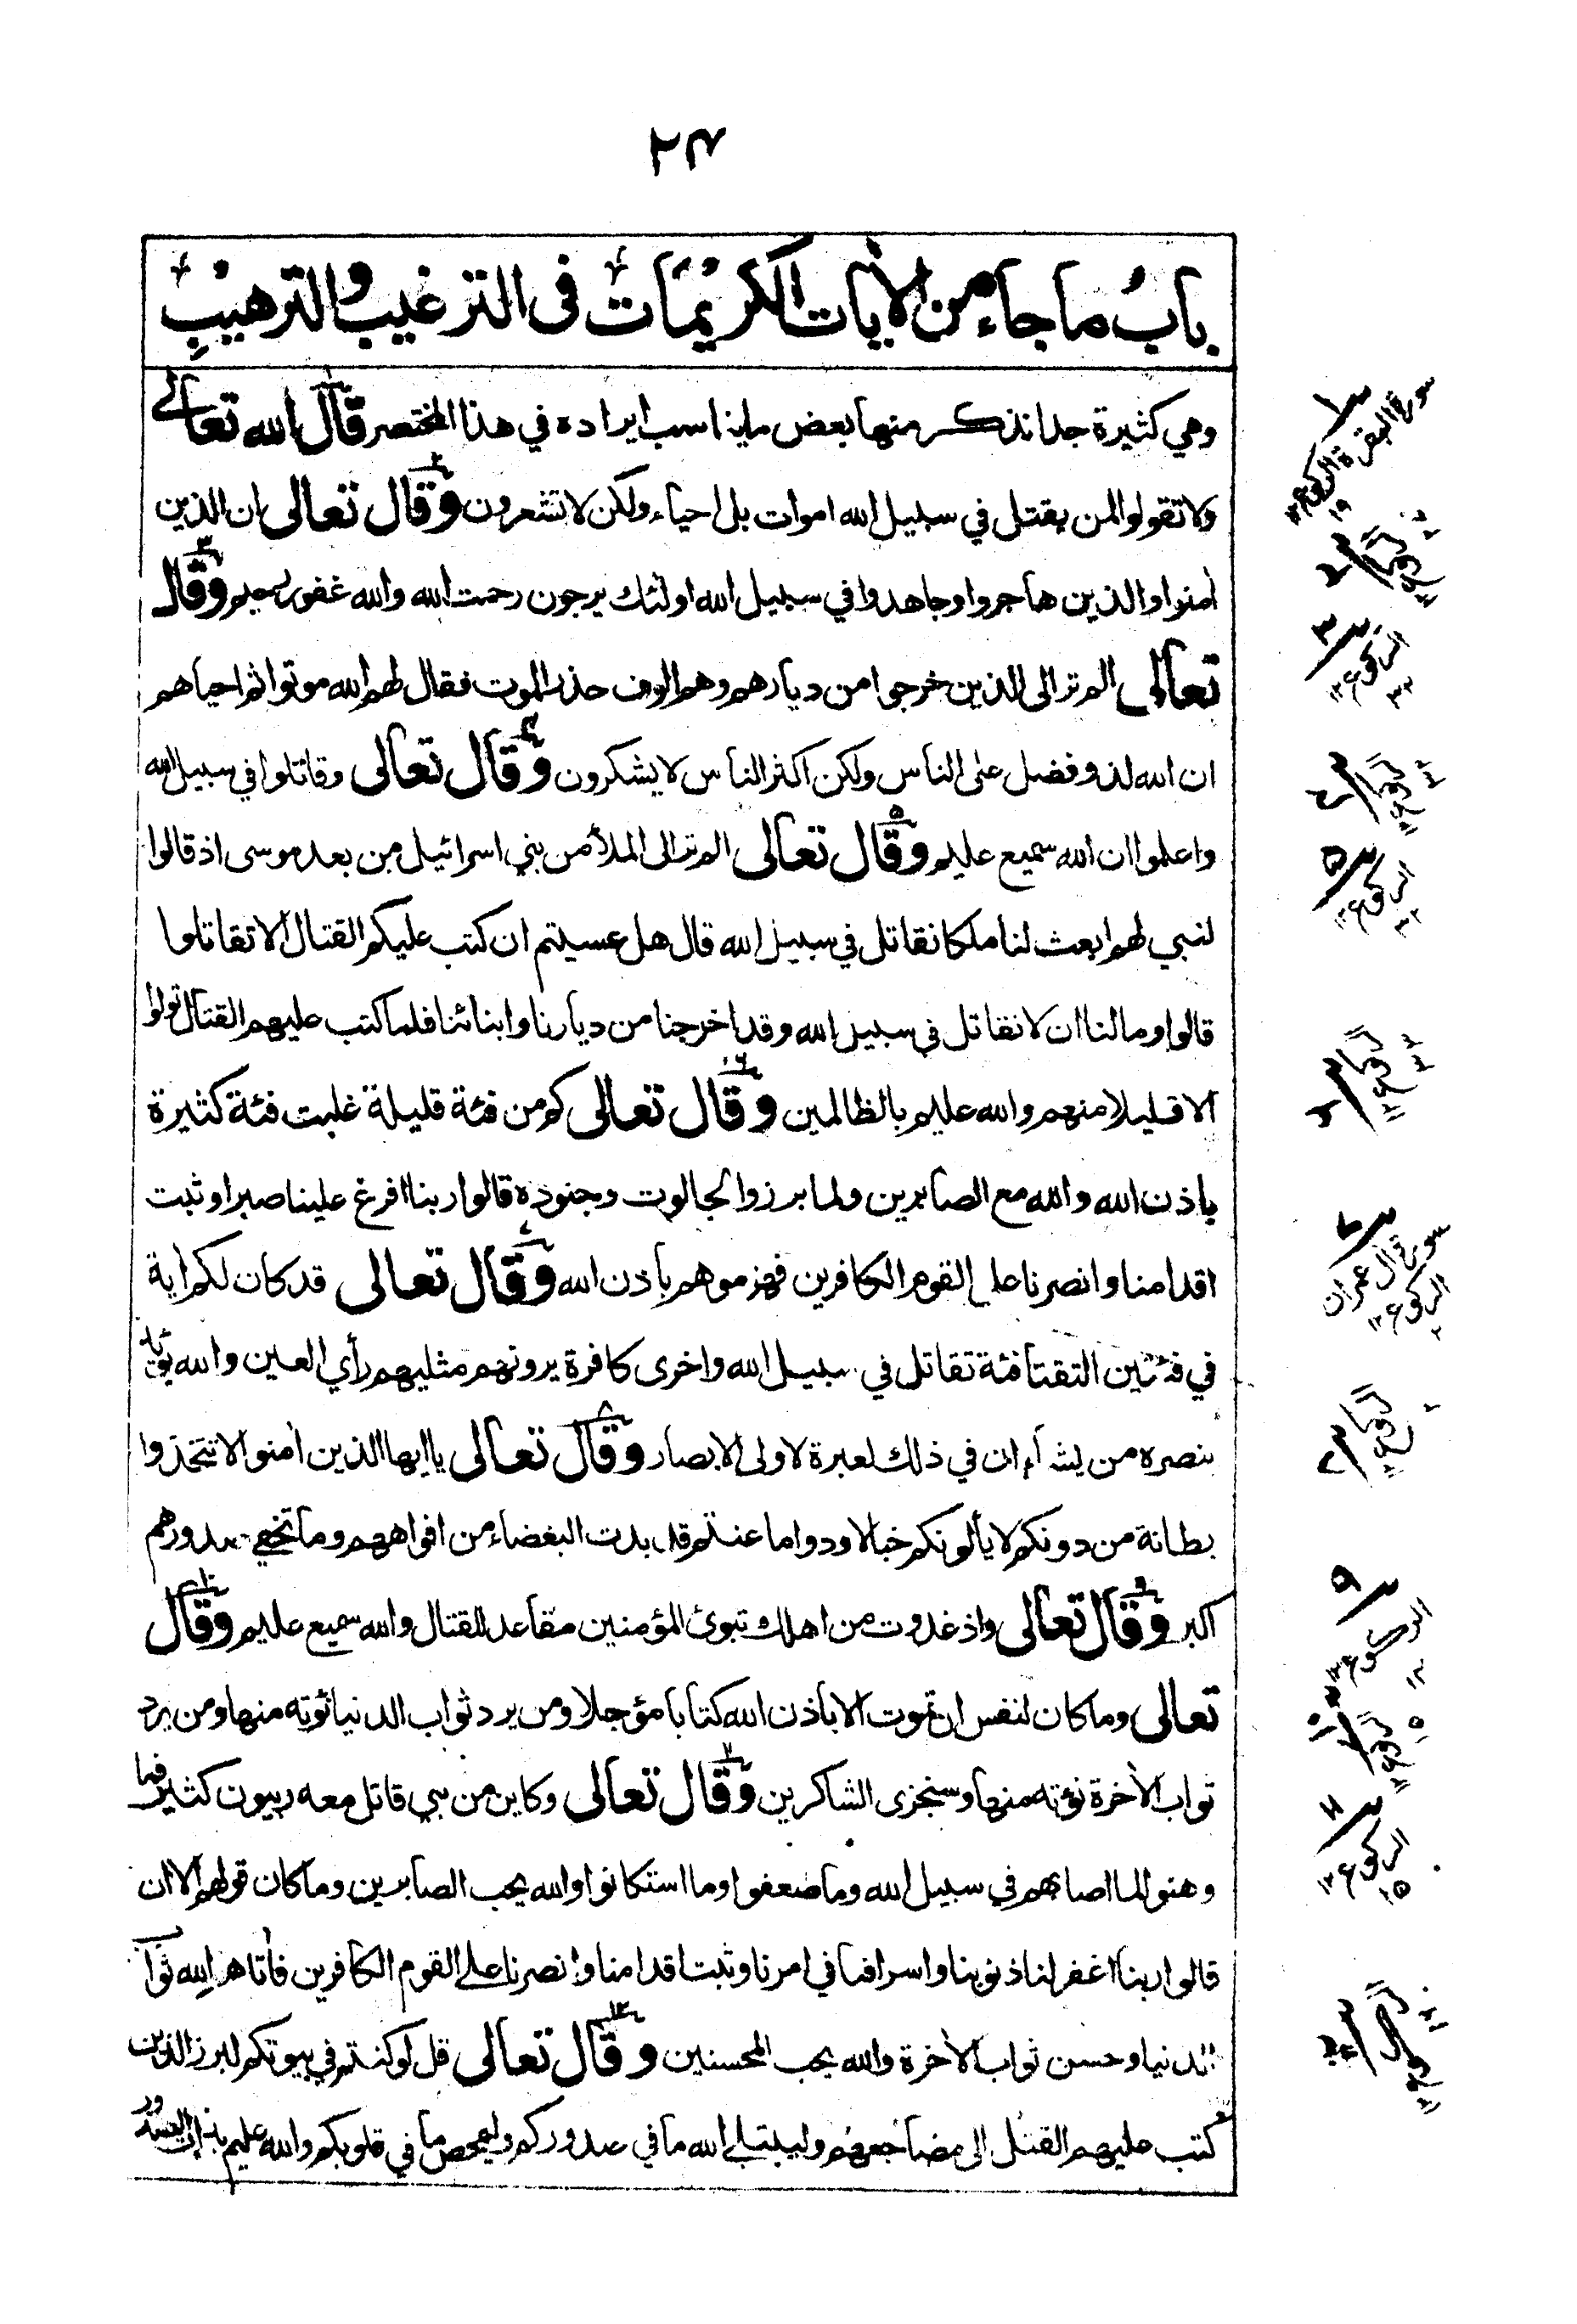 ٢٤
باب ما جاء من الآيات الكريمات فى الترغيب والترهيب
وهي كثيرة جدا نذكر منها بعض ما يناسب ايراده في هذا المختصر قال الله تعالى
ولا تقولوا لمن يقتل في سبيل الله اموات بل احياء ولكن لا تشعرون وقال تعالى ان الذين
أمنوا والذين هاجروا وجاهدوا في سبيل الله اولئك يرجون رحمت الله والله غفور رحيم وقال
تعالى الم تر الى الذين خرجوا من ديارهم وهم الوف حذر الموت فقال لهم الله موتوا ثم احياهم
ان الله لذو فضل على الناس ولكن اكثر الناس لا يشكرون وقال تعالى وقاتلوا في سبيل الله
واعلموا ان الله سميع عليم وقال تعالى الم تر الى الملأ من بني اسرائيل من بعد موسى اذ قالوا
لنبي لهم ابعث لنا ملكا نقاتل في سبيل الله قال هل عسيتم ان كتب عليكم القتال الا تقاتلوا
قالوا وما لنا ان لا نقاتل في سبيل الله وقد اخرجنا من ديارنا وابنائنا فلما كتب عليهم القتال تولوا
الا قليلا منهم والله عليم بالظالمين وقال تعالى كم من فئة قليلة غلبت فئة كثيرة
باذن الله والله مع الصابرين ولما برزوا لجالوت وجنوده قالوا ربنا افرغ علينا صبرا وثبت
اقدامنا وانصرنا على القوم الكافرين فهزموهم باذن الله وقال تعالى قد كان لكم اية
في فئتين التقتا فئة تقاتل في سبيل الله واخرى كافرة يرونهم مثليهم رأي العين والله يؤيد
بنصره من يشاء ان في ذلك لعبرة لاولى الابصار وقال تعالى يا ايها الذين أمنوا لا تتخذوا
بطانة من دونكم لا يألونكم خبالا ودوا ما عنتم قد بدت البغضاء من افواههم وما تخفي صدورهم
اكبر وقال تعالى واذ غدوت من اهلك تبوئ المؤمنين مقاعد للقتال والله سميع عليم وقال
تعالى وما كان لنفس ان تموت الا باذن الله كتابا مؤجلا ومن يرد ثواب الدنيا نؤته منها ومن يرد
ثواب الأخرة نؤته منها وسنجزى الشاكرين وقال تعالى وكاين من نبي قاتل معه ربيون كثير فما
وهنوا لما اصابهم في سبيل الله وما ضعفوا وما استكانوا والله يحب الصابرين وما كان قولهم الا ان
قالوا ربنا اغفر لنا ذنوبنا واسرافنا في امرنا وثبت اقدامنا وانصرنا على القوم الكافرين فأتاهم الله ثواب
الدنيا وحسن ثواب الأخرة والله يحب المحسنين وقال تعالى قل لو كنتم في بيوتكم لبرز الذين
كتب عليهم القتل الى مضاجعهم وليبتلي الله ما في صدوركم وليمحص ما في قلوبكم والله عليم بذات الصدور
١
سورة البقرة الركوع
١٩
٢
٣
الركوع
٣٢
٤
٥
الركوع
٣٢
٦
٧
سورة آل عمران
الركوع
٢
٨
٩
الركوع
١٣
١٠
١١
الركوع
١٥
١٢